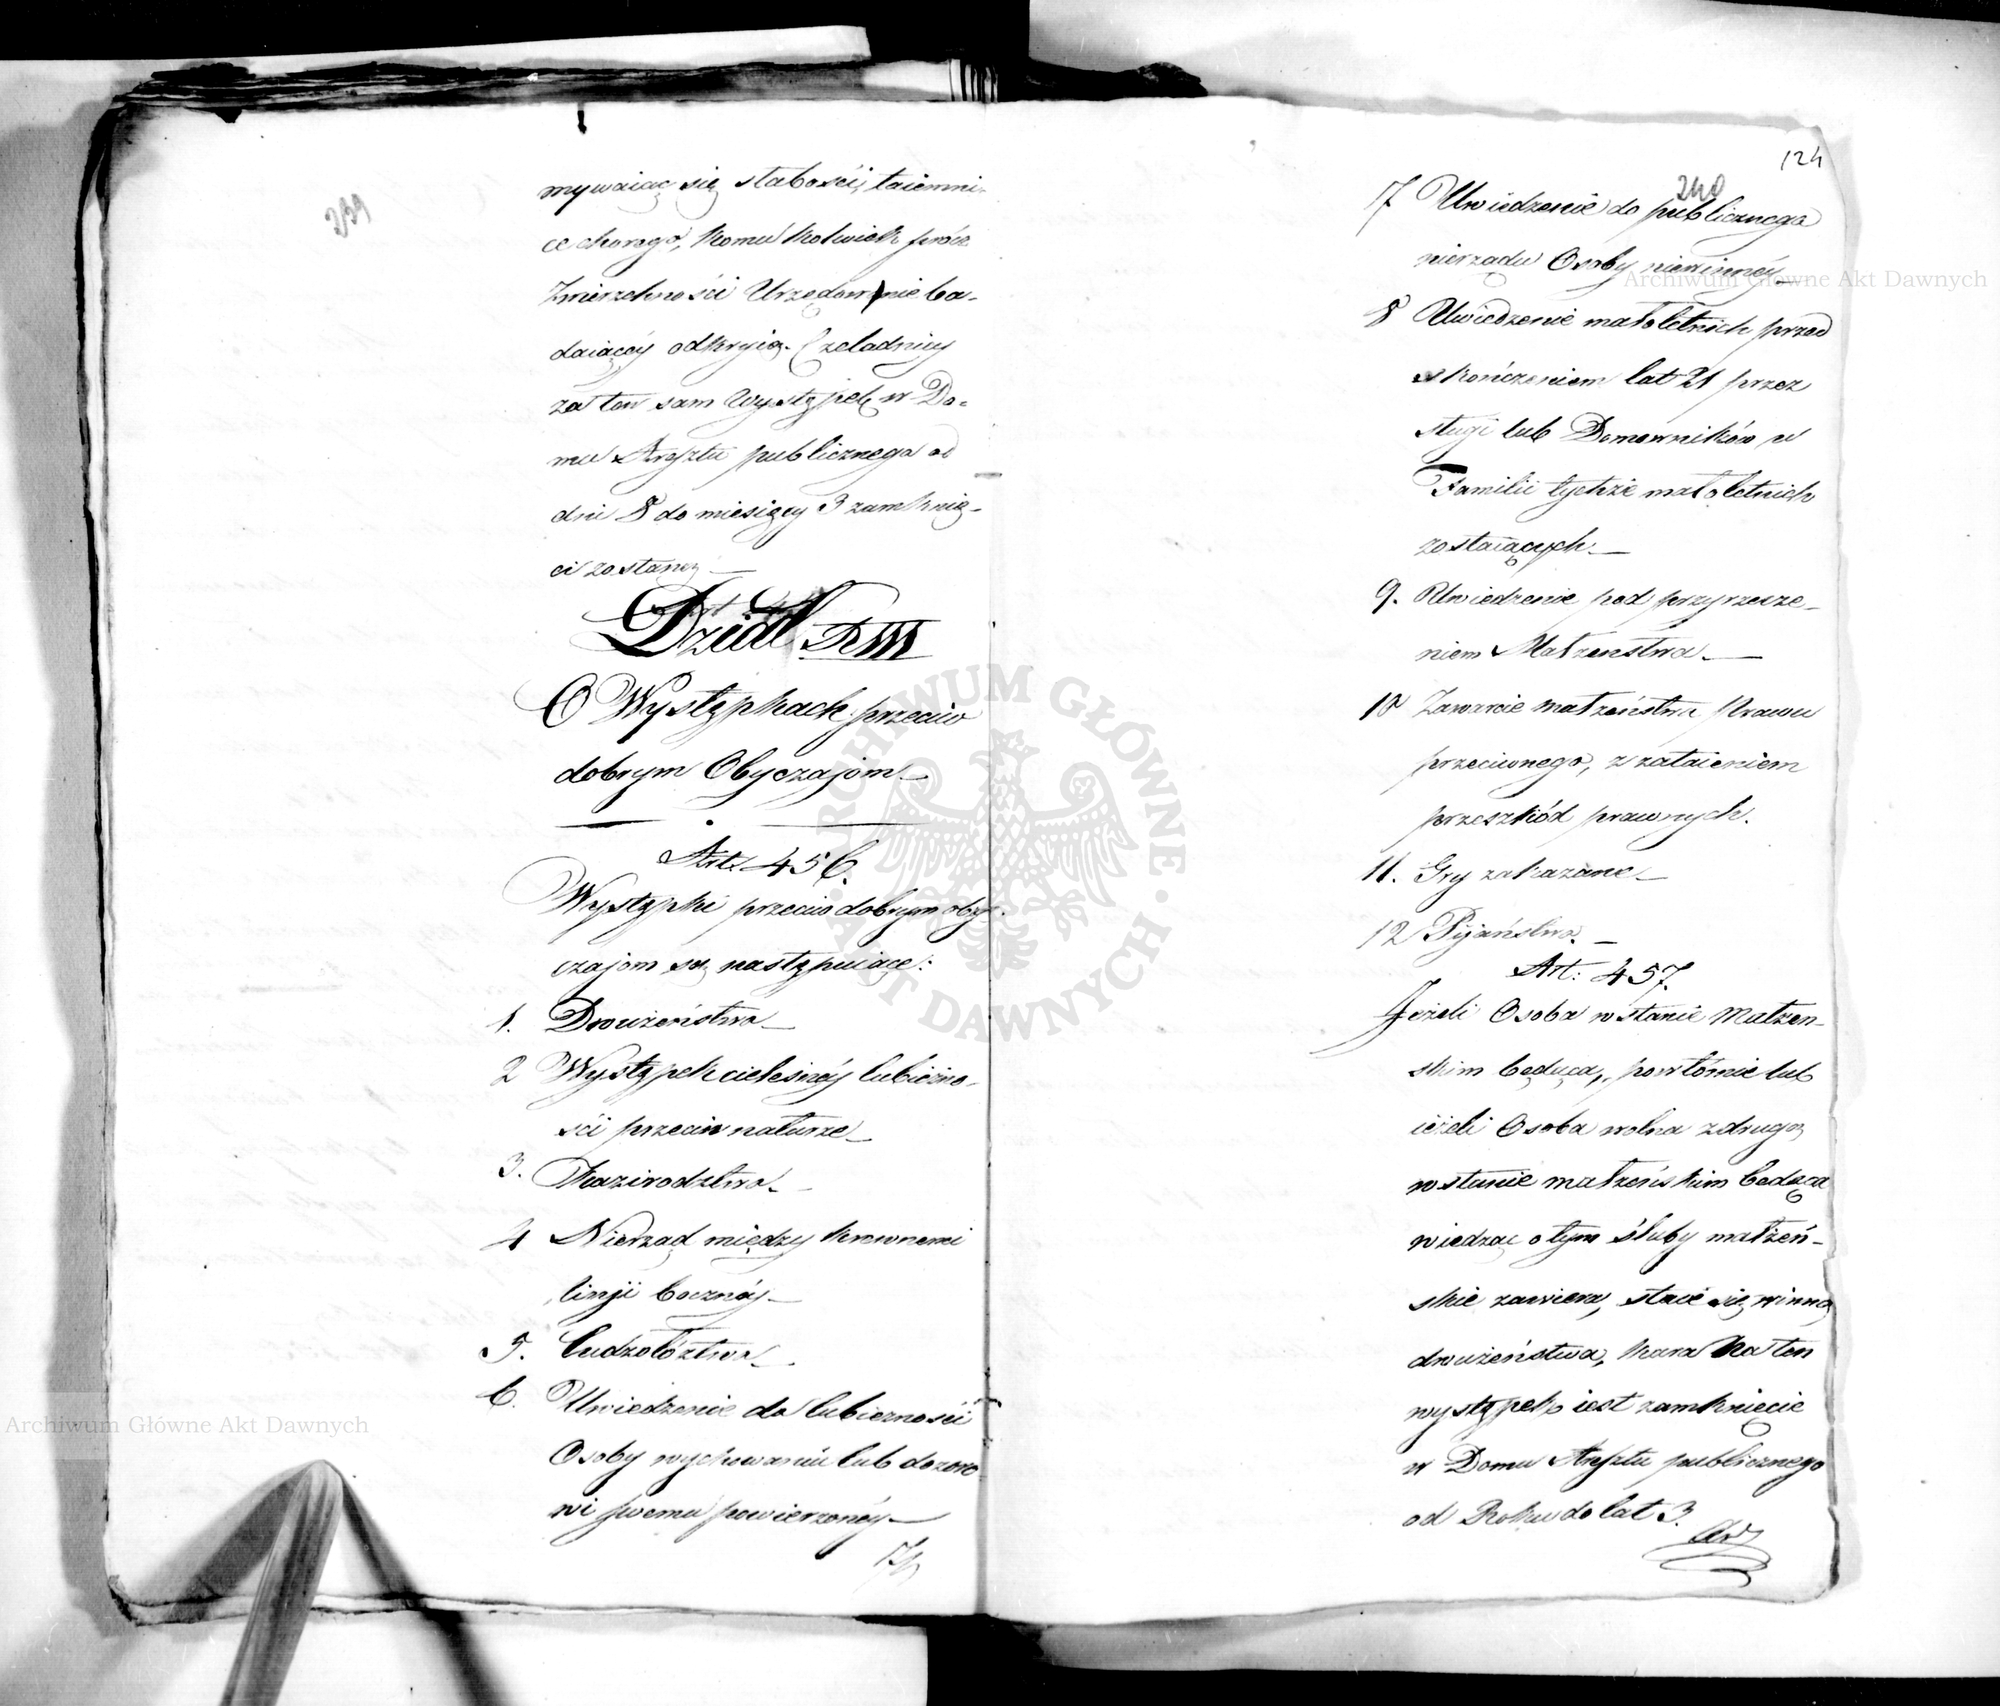 239
mywaiąc się słabości, taiemni-
ce chorego, komukolwiek prócz
Zwierzchności Urzędownie ba-
daiącéy odkryią. Czeladnicy
za ten sam Występek w Do-
mu Aresztu publicznego od
dni 8 do miesięcy 3 zamknię-
ci zostaną —
Dział
O Występkach przeciw
dobrym Obyczajom —
Art: 456.
Występki przeciw dobrym oby-
czajom są następuiące:
1. Dwużeństwo —
2 Występek cielesnéy lubieżno-
ści przeciw naturze —
3. Kazirodztwo —
4 Nierząd między krewnemi
linji bocznéy —
5. Cudzołóztwo —
6. Uwiedzenie do lubieżności
Osoby wychowaniu lub dozoro-
wi swemu powierzonéy —
124
240
7 Uwiedzenie do publicznego
nierządu Osoby niewinnéy
8 Uwiedzenie małoletnich przed
skończeniem lat 21 przez
sługi lub Domowników w
Familii tychże małoletnich
zostaiących —
9. Uwiedzenie pod przyrzecze-
niem Małżeństwa —
10 Zawarcie małżeństwa Prawu
przeciwnego, z zataieniem
przeszkód prawnych.
11. Gry zakazane —
12 Pijaństwo —
Art: 457.
Jeżeli Osoba w stanie Małżeń-
skim będąca, powtórnie lub
ieżeli Osoba wolna z drugą
w stanie małżeńskim będącą
wiedząc o tym śluby małżeń-
skie zawiera, staie się winną
dwużeństwa, kara na ten
występek iest zamknięcie
w Domu Aresztu publicznego
od Roku do lat 3.
Art
ARCHIWUM GŁÓWNE · AKT DAWNYCH ·
Archiwum Główne Akt Dawnych
Archiwum Główne Akt Dawnych